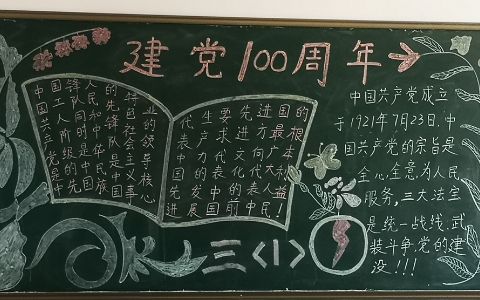 建党100周年
中国共产党是中
国工人阶级的先
锋队同时是中国
人民和中华民族
的先锋队是中国
特色社会主义事
业的领导核心
代表中国先进
生产力的发展
要求代表中国
先进文化的前
进方向代表中
国最广大人民
的根本利益!
中国共产党成立
于1921年7月23日.中
国共产党的宗旨是
全心全意为人民
服务,三大法宝
是统一战线.武
装斗争.党的建
设!!!
三〈1〉